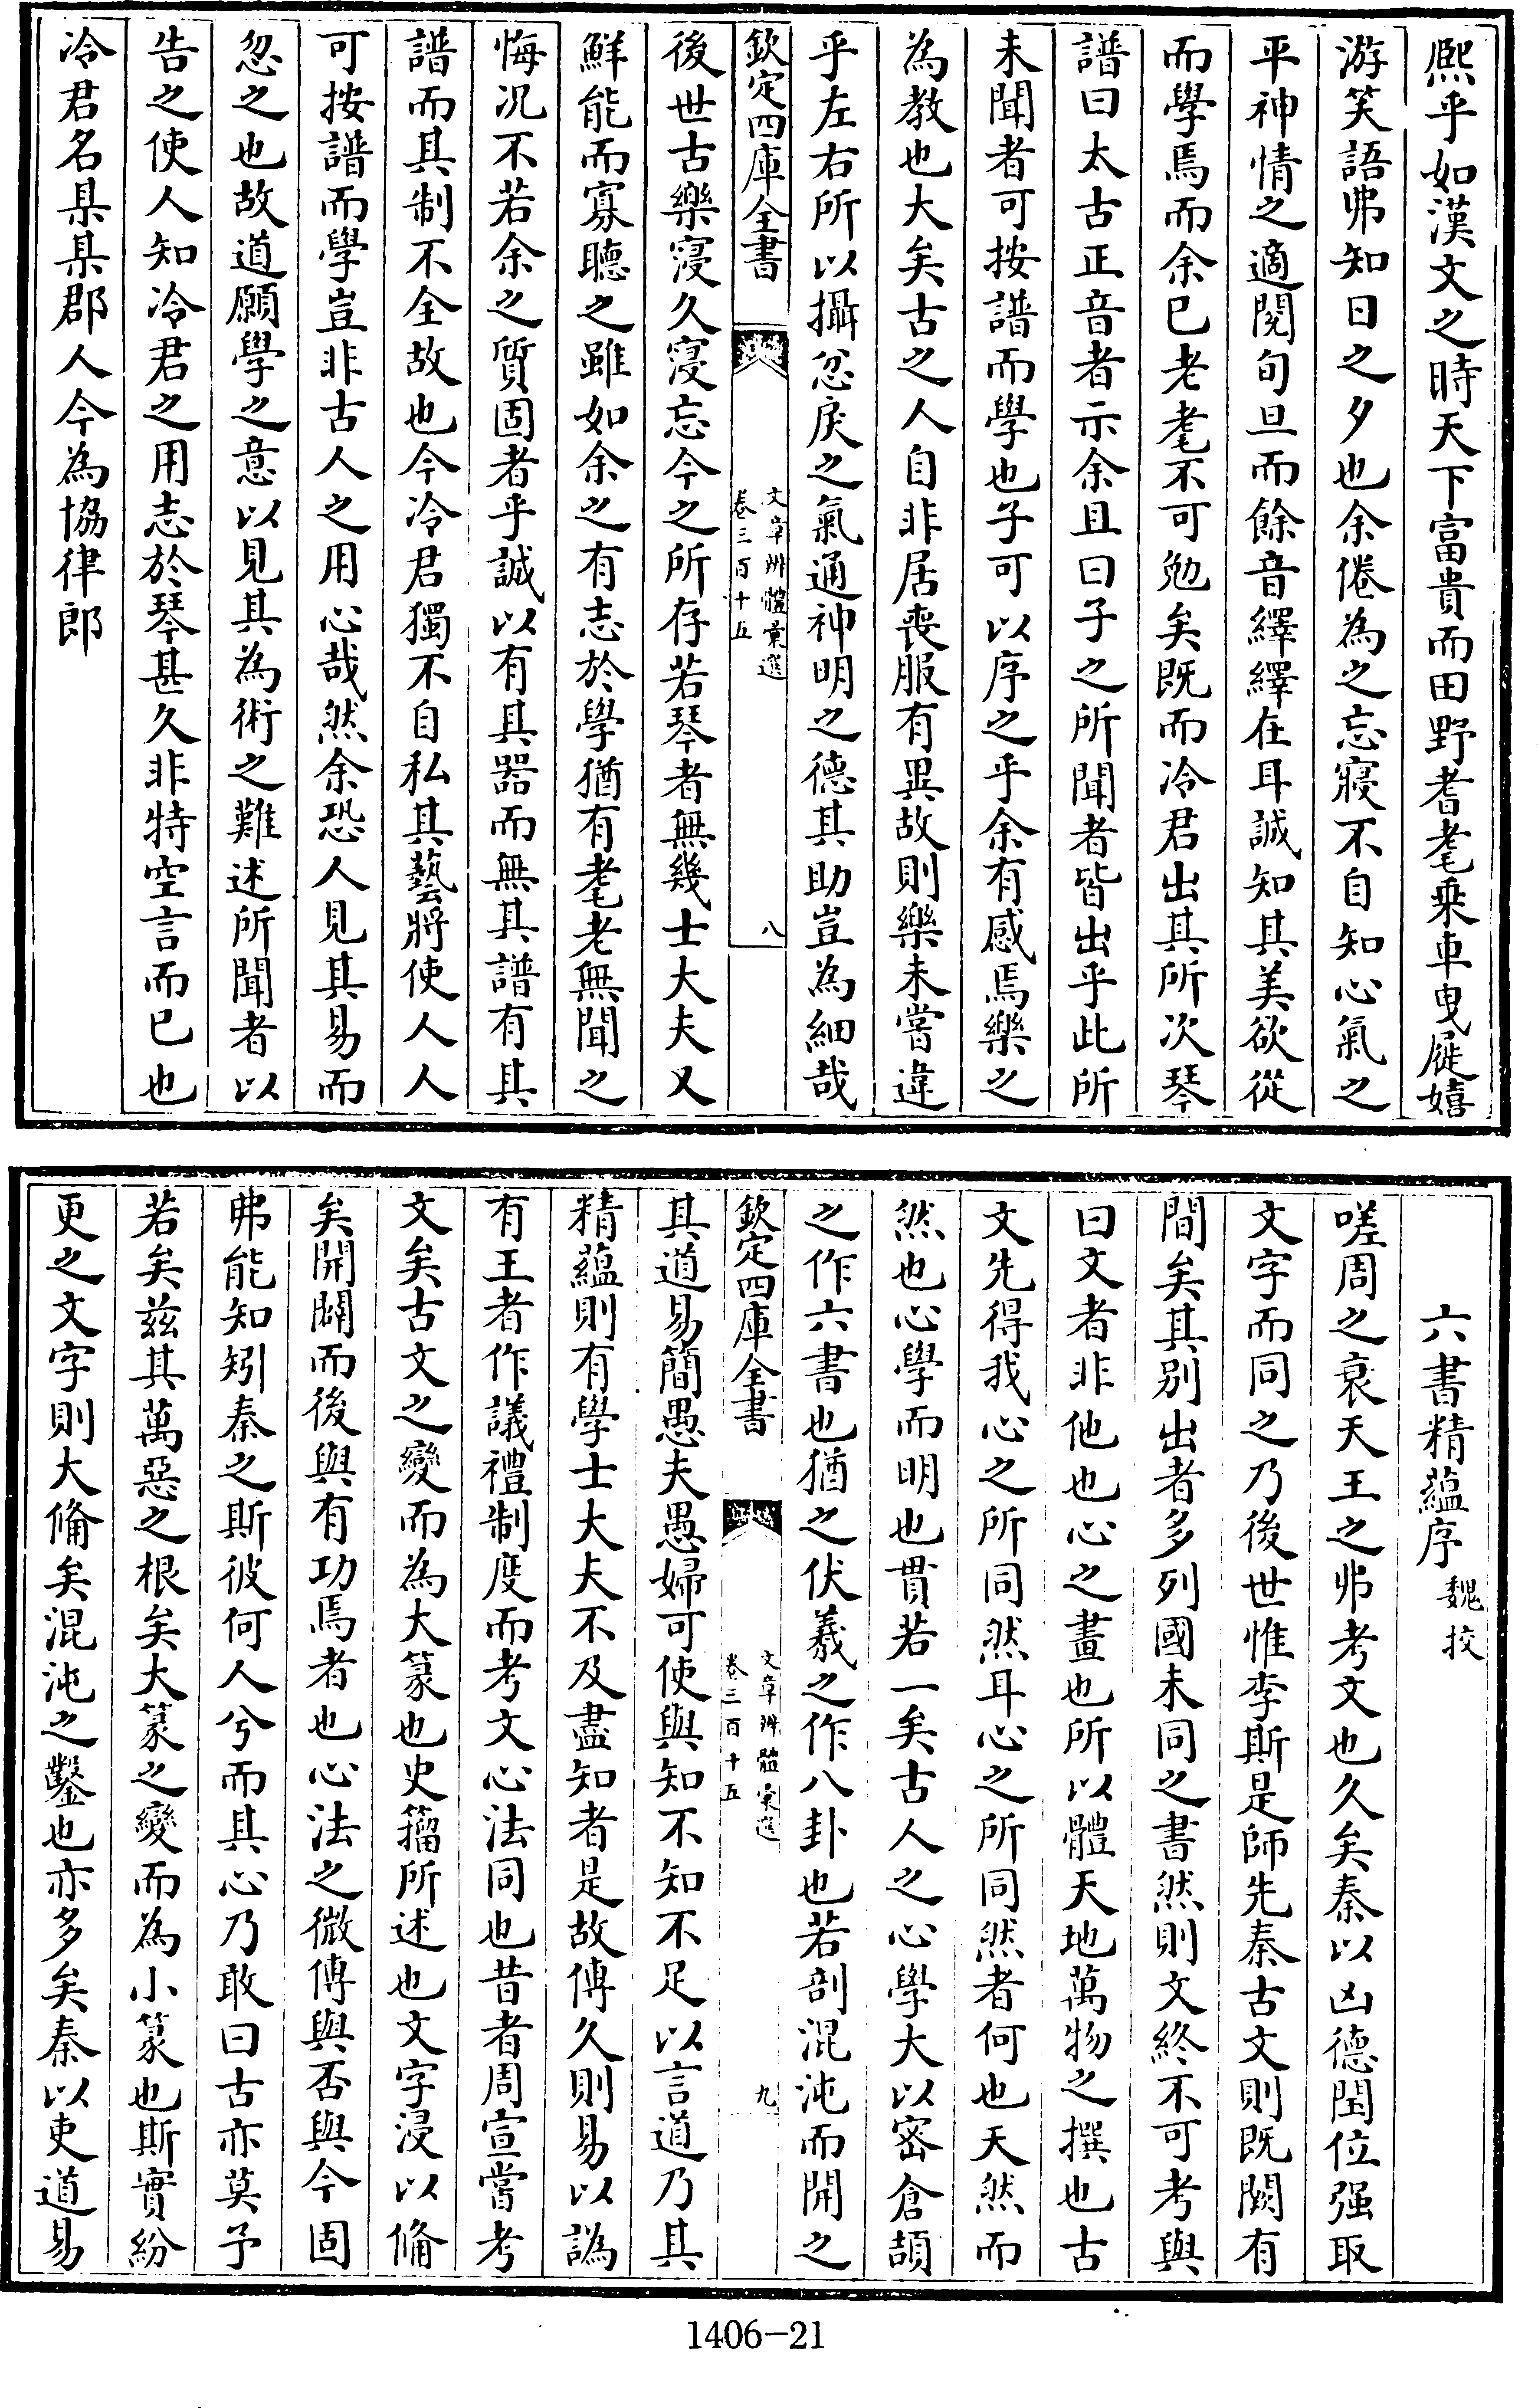 熈乎如漢文之時天下富貴而田野耆耄乗車曳屣嬉
游笑語弗知日之夕也余倦為之忘寢不自知心氣之
平神情之適閱旬旦而餘音繹繹在耳誠知其美欲從
而學焉而余已老耄不可勉矣既而冷君出其所次琴
譜曰太古正音者示余且曰子之所聞者皆出乎此所
未聞者可按譜而學也子可以序之乎余有感焉樂之
為教也大矣古之人自非居喪服有異故則樂未嘗違
乎左右所以攝忿戾之氣通神明之德其助豈為細哉
欽定四庫全書
文章辨體彙選
卷三百十五
八
後世古樂寖久寖忘今之所存若琴者無幾士大夫又
鮮能而寡聽之雖如余之有志於學猶有耄老無聞之
悔况不若余之質固者乎誠以有其器而無其譜有其
譜而其制不全故也今冷君獨不自私其藝將使人人
可按譜而學豈非古人之用心哉然余恐人見其易而
忽之也故道願學之意以見其為術之難述所聞者以
告之使人知冷君之用志於琴甚久非特空言而已也
冷君名某某郡人今為協律郎
六書精蘊序 魏校
嗟周之衰天王之弗考文也久矣秦以凶德閏位强取
文字而同之乃後世惟李斯是師先秦古文則既闕有
間矣其别出者多列國未同之書然則文終不可考與
曰文者非他也心之畫也所以體天地萬物之撰也古
文先得我心之所同然耳心之所同然者何也天然而
然也心學而明也貫若一矣古人之心學大以密倉頡
之作六書也猶之伏羲之作八卦也若剖混沌而開之
欽定四庫全書
文章辨體彙選
卷三百十五
九
其道易簡愚夫愚婦可使與知不知不足以言道乃其
精蘊則有學士大夫不及盡知者是故傳久則易以譌
有王者作議禮制度而考文心法同也昔者周宣嘗考
文矣古文之變而為大篆也史籀所述也文字浸以備
矣開闢而後與有功焉者也心法之微傳與否與今固
弗能知矧秦之斯彼何人兮而其心乃敢曰古亦莫予
若矣兹其萬惡之根矣大篆之變而為小篆也斯實紛
更之文字則大備矣混沌之鑿也亦多矣秦以吏道易
1406-21